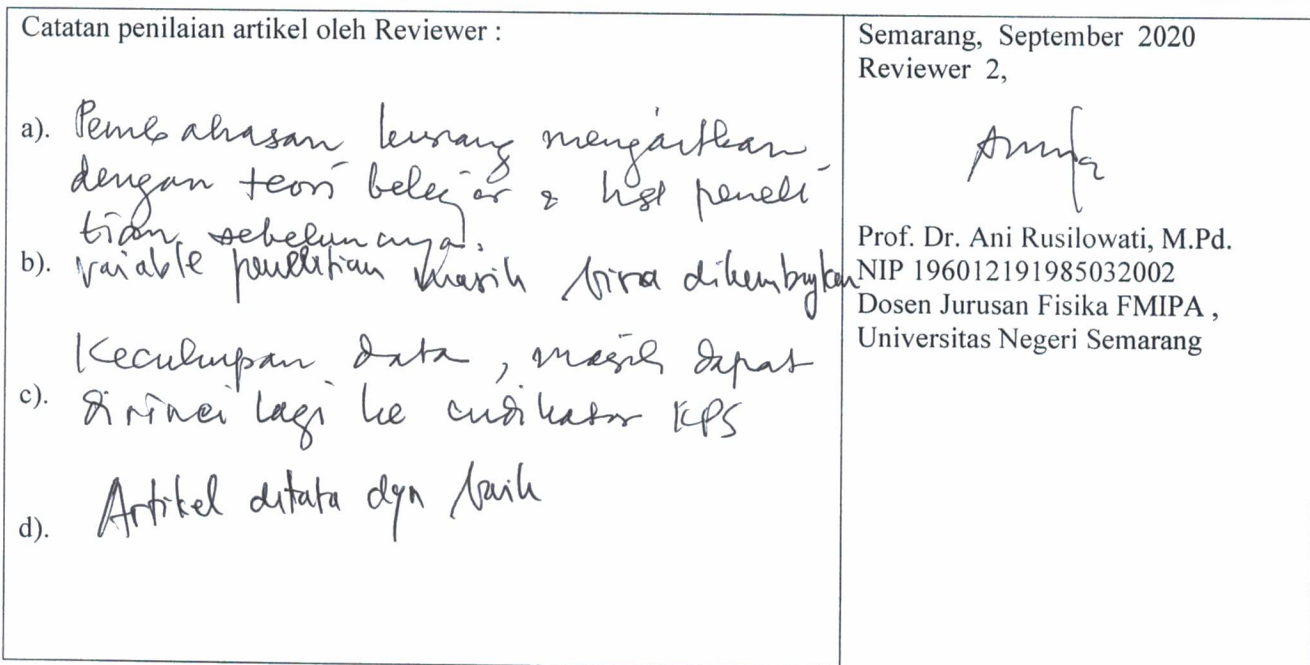 Catatan penilaian artikel oleh Reviewer :
a). Pembahasan kurang mengaitkan
dengan teori belajar & hsl peneli
tian sebelumnya.
b). variable penelitian masih bisa dikembngkan
Kecukupan data, masih dapat
c). dirinci lagi ke indikator KPS
Artikel ditata dgn baik
d).
Semarang, September 2020
Reviewer 2,
Prof. Dr. Ani Rusilowati, M.Pd.
NIP 196012191985032002
Dosen Jurusan Fisika FMIPA ,
Universitas Negeri Semarang